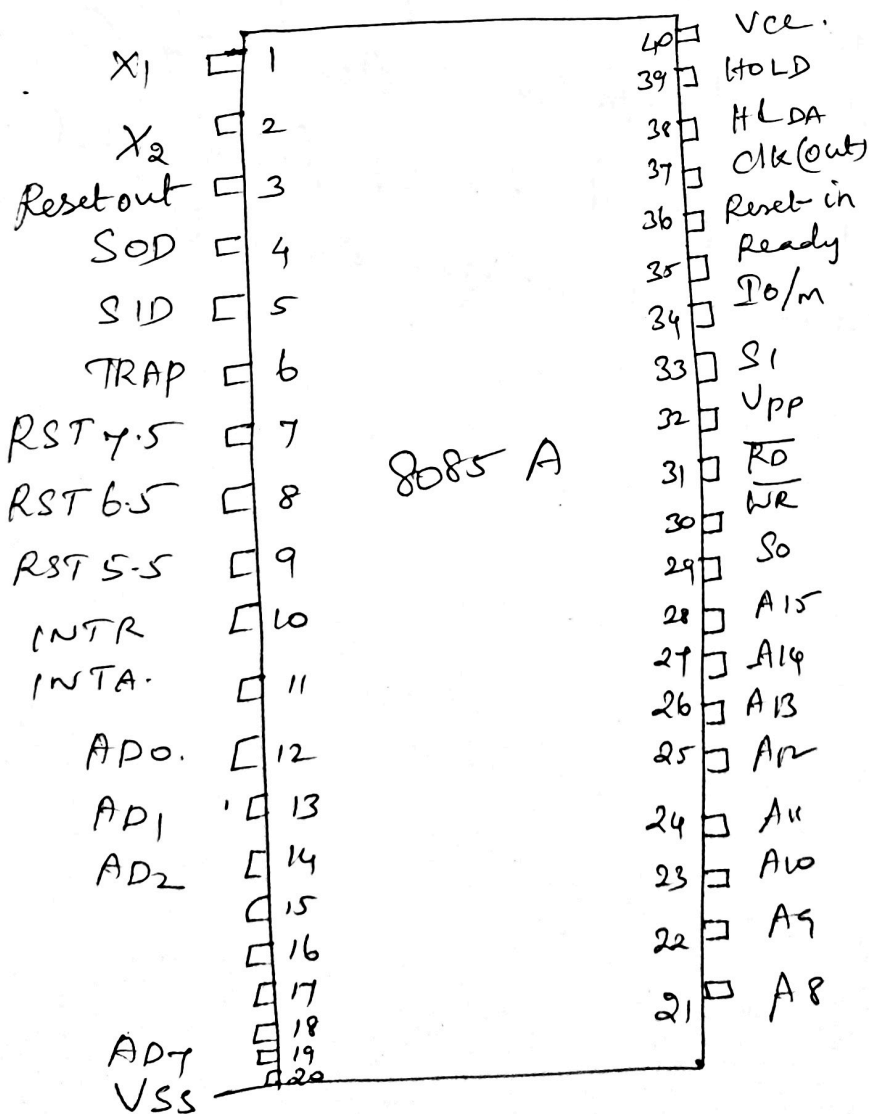 X1 1
X2 2
Reset out 3
SOD 4
SID 5
TRAP 6
RST 7.5 7
RST 6.5 8
RST 5.5 9
INTR 10
INTA. 11
AD0. 12
AD1 13
AD2 14
15
16
17
18
AD7 19
VSS 20
8085 A
40 Vcc.
39 HOLD
38 HLDA
37 Clk(out)
36 Reset in
35 Ready
34 Io/m
33 S1
32 Vpp
31 R̅D̅
30 W̅R̅
29 S0
28 A15
27 A14
26 A13
25 A12
24 A11
23 A10
22 A9
21 A8